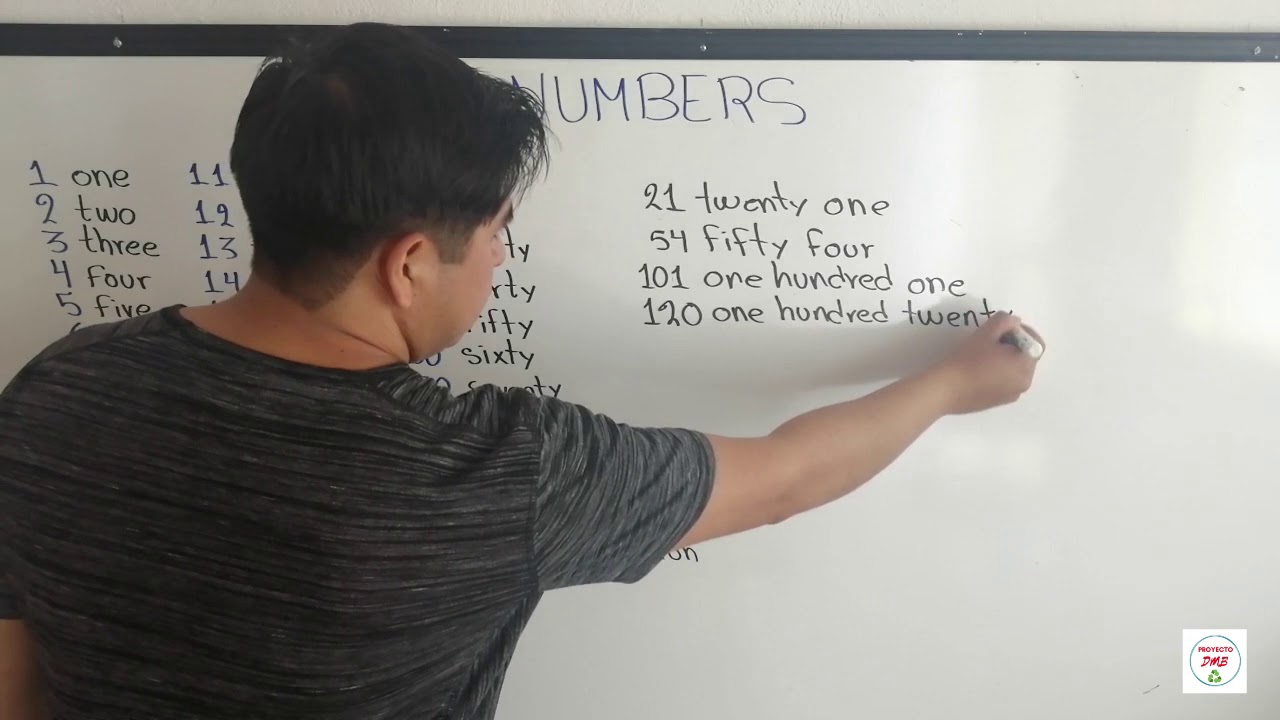 NUMBERS
1 one
2 two
3 three
4 four
5 five
11
12
13
14
sixty
21 twenty one
54 fifty four
101 one hundred one
120 one hundred twenty
PROYECTO
DMB